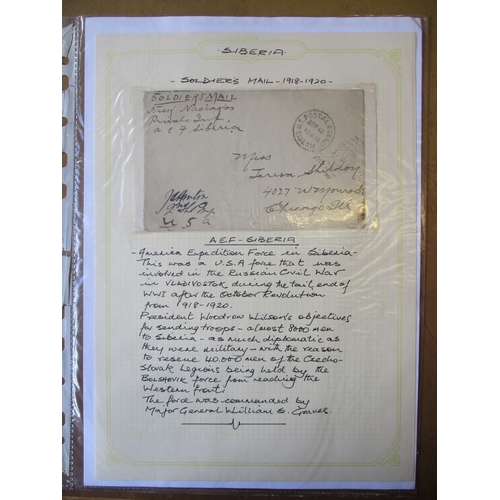 SIBERIA.
- SOLDIER'S MAIL - 1918-1920 -
SOLDIERS MAIL
Private Inf.
A E F Siberia
Miss
Teresa
4027 W Monroe
Chicago Ill
U S A
AEF - SIBERIA
- America Expedition Force in Siberia -
This was a U.S.A force that was
involved in the Russian Civil War
in VLADIVOSTOK during the tail end of
WWI after the October Revolution
from 1918-1920.
President Woodrow Wilson's objectives
for sending troops - almost 8000 men
to Siberia - as much diplomatic as
they were military - with the reason
to rescue 40.000 men of the Czecho-
Slovak Legions being held by the
BOLSHOVIK force from reaching the
Western front.
The force was commanded by
Major General William S. Graves.